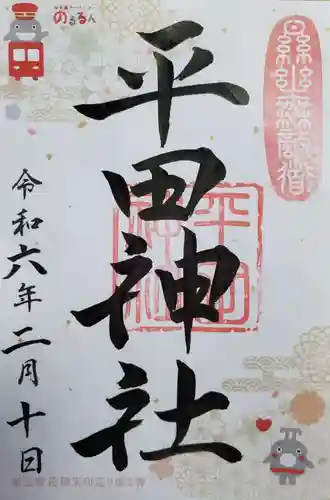 のるるん
平田神社
令和六年二月十日
平田
神社